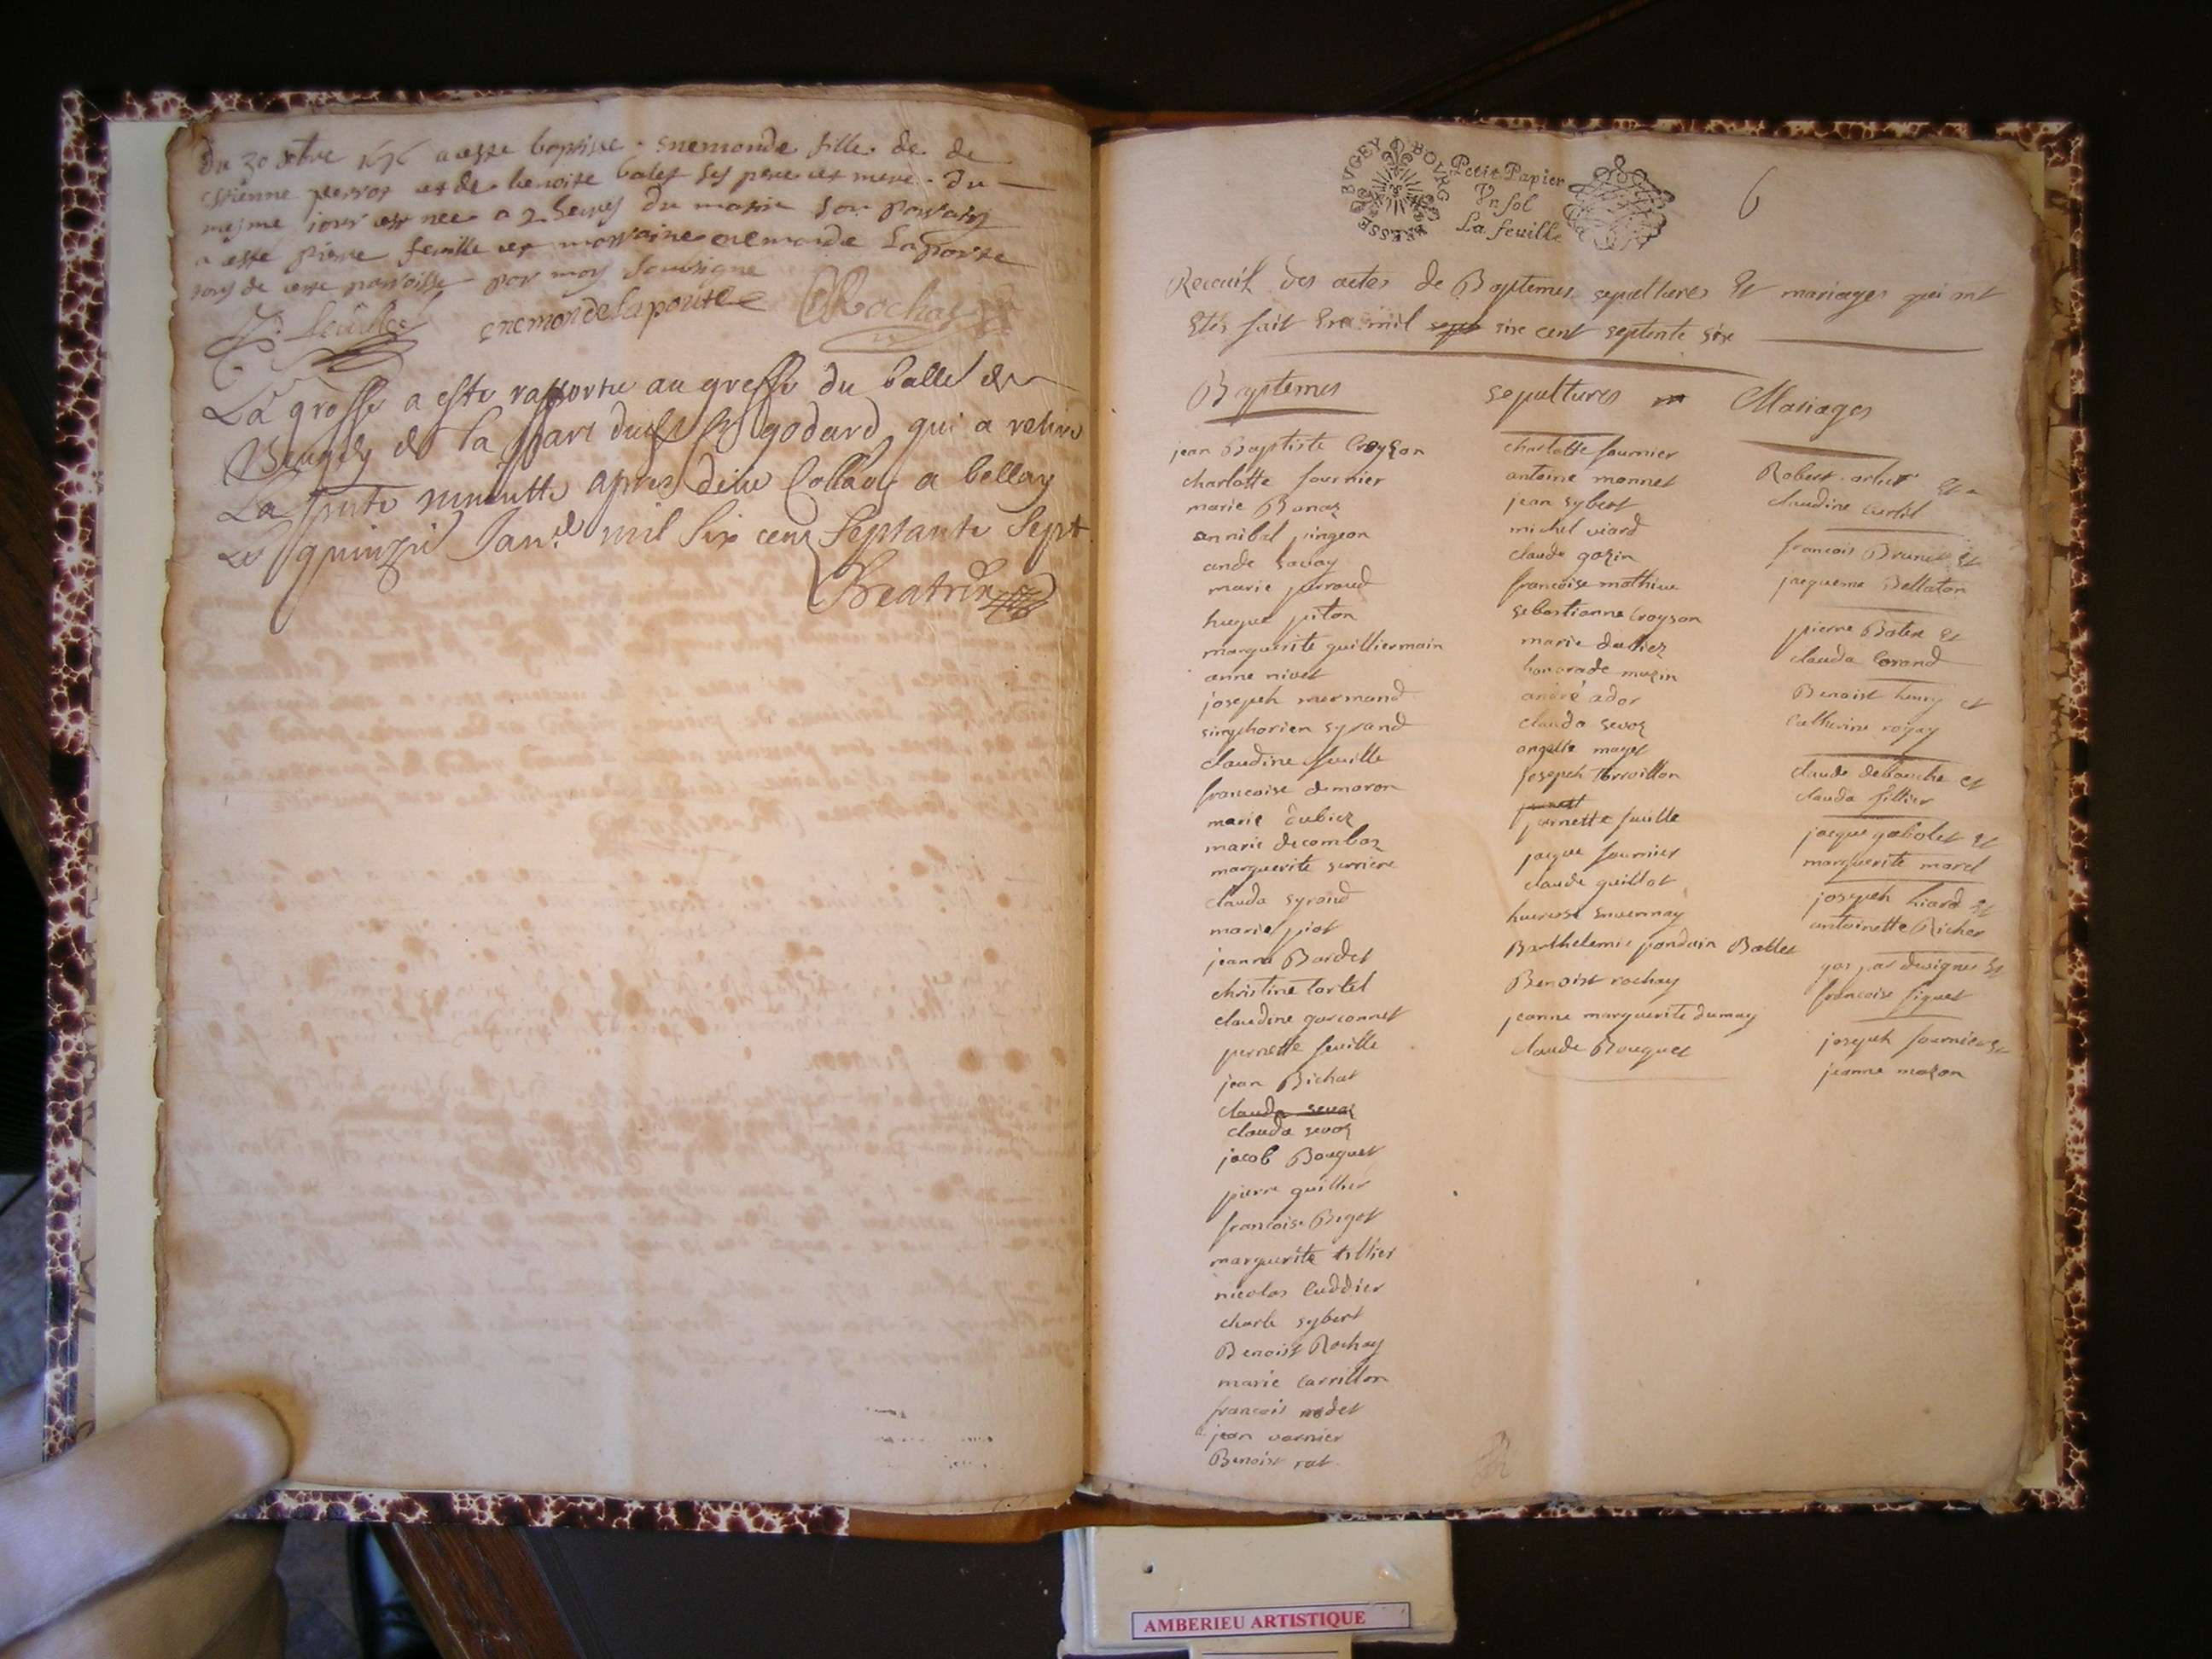 Du 30 octbre 1676 a esté baptisee enemonde fille de de
estienne perrot et de benoite balet ses pere et mere du
mesme jour est nee a 2 heures du matin son parrain
a esté pierre feuille et marraine enemonde Laporte
tous de cette parroisse par moy soubsigne
P. feuillet enemonde laporte Rochas
La grosse a esté rapportee au greffe du balle de
Beugey de la part dudt Sr godard qui a retiré
La pnte minutte apres deue Collaon a bellay
Le quinzie Janer mil six cens septante sept
Beatrix
BUGEY BOURG BRESSE
Petit Papier
Un sol
La feuille
6
Recueil des actes de Baptemes sepultures Et mariages qui ont
Etés fait En mil six cent septente six
Baptemes
jean Baptiste Croyson
charlotte fournier
marie Bonaz
annibal pingeon
ande savay
marie perroud
hugue piton
marguerite guilliermain
anne nivet
joseph mermand
simphorien syrand
claudine feuille
francoise demaron
marie dubiez
marie decombaz
marguerite serriere
clauda syrand
marie piot
jeanne Bardet
christine tortel
claudine garconnet
pernette feuille
jean Bichat
clauda sevoz
clauda sevoz
jacob Bouquet
pierre guillier
francoise Bigot
marguerite tillier
nicolas Cuddier
charle sybert
Benoist Rochay
marie Carrillon
francois nodet
jean varnier
Benoist rat
sepultures
charlotte fournier
antoine monnet
jean sybert
michel viard
claude gozin
francoise mathieu
sebastianne Croyson
marie dubiez
honorade mazin
andré ador
clauda sevoz
angelie mayet
joseph torvillon
pernette feuille
jacque fournier
claude guillot
Barthelemie pondain Ballet
Benoist rochay
jeanne marguerite dumay
claude Bouquet
Mariages
Robert artur Et
claudine Curtil
francois Brunet Et
jacqueme Bellaton
pierre Batix Et
clauda Corand
Benoist henry et
Catherine royay
claude debauche et
clauda fillier
jacque gabolet Et
marguerite morel
joseph liard Et
antoinette Richer
pas designer Et
francoise siguet
joseph fournier Et
jeanne mazon
AMBERIEU ARTISTIQUE